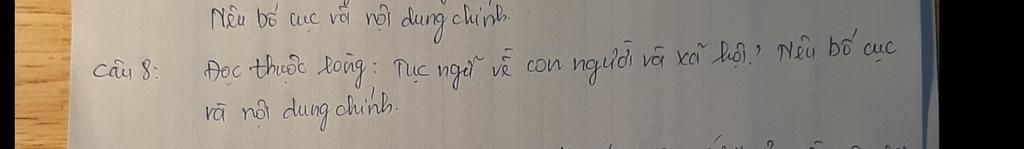 Nêu bố cục với nội dung chính.
Câu 8: Đọc thuộc lòng: Tục ngữ về con người và xã hội? Nêu bố cục
và nội dung chính.